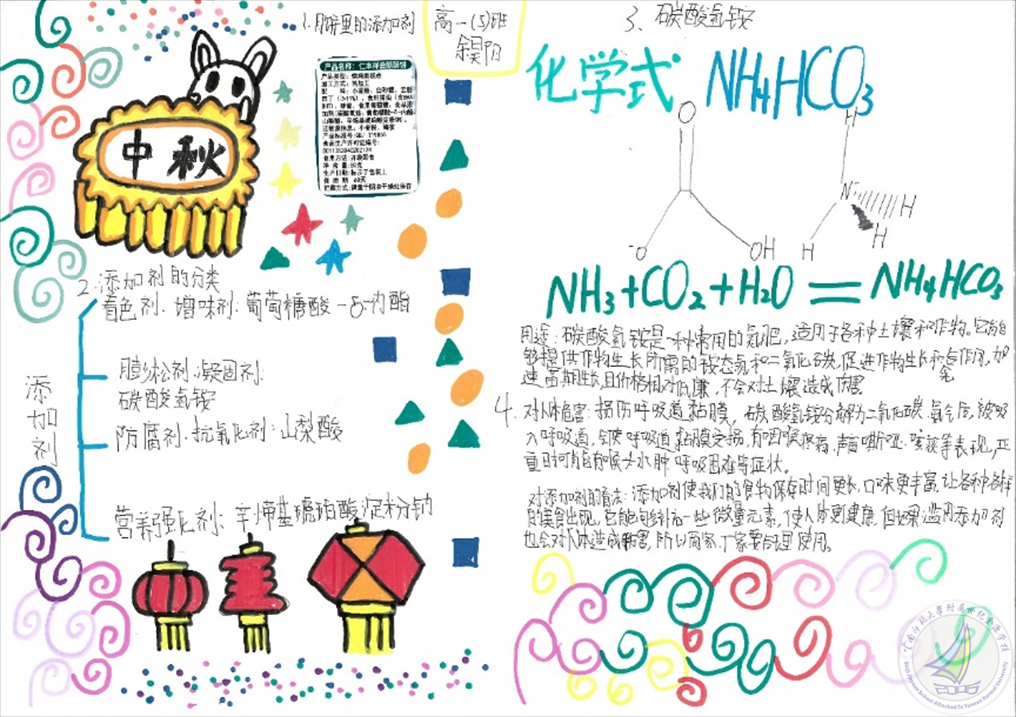 1.月饼里的添加剂
高一(5)班
中秋
产品名称:仁丰祥云酥硕饼
产品类型:烘烤类糕点
加工方式:热加工
2.添加剂的分类
着色剂、增味剂:葡萄糖酸-δ-内酯
膨松剂、凝固剂:
碳酸氢铵
防腐剂、抗氧化剂:山梨酸
营养强化剂:辛烯基琥珀酸淀粉钠
添加剂
3、碳酸氢铵
化学式 NH4HCO3
O
-O
OH
H
N
H
H
H
NH3+CO2+H2O=NH4HCO3
用途:碳酸氢铵是一种常用的氮肥,适用于各种土壤和作物。它能
够提供作物生长所需的铵态氮和二氧化碳,促进作物生长和光合作用,加
速苗期生长,且价格相对低廉,不会对土壤造成伤害
4.对人体危害:损伤呼吸道黏膜,碳酸氢铵分解为二氧化碳、氨气后,被吸
入呼吸道,会使呼吸道黏膜受损,有咽喉疼痛,声音嘶哑、咳嗽等表现,严
重时可能有喉头水肿、呼吸困难等症状。
对添加剂的看法:添加剂使我们的食物保存时间更长,口味更丰富,让各种各样
的美食出现,它能够补充一些微量元素,使人体更健康,但如果滥用添加剂
也会对人体造成损害,所以商家、厂家要合理使用。
雲南师范大學附属世纪金源学校